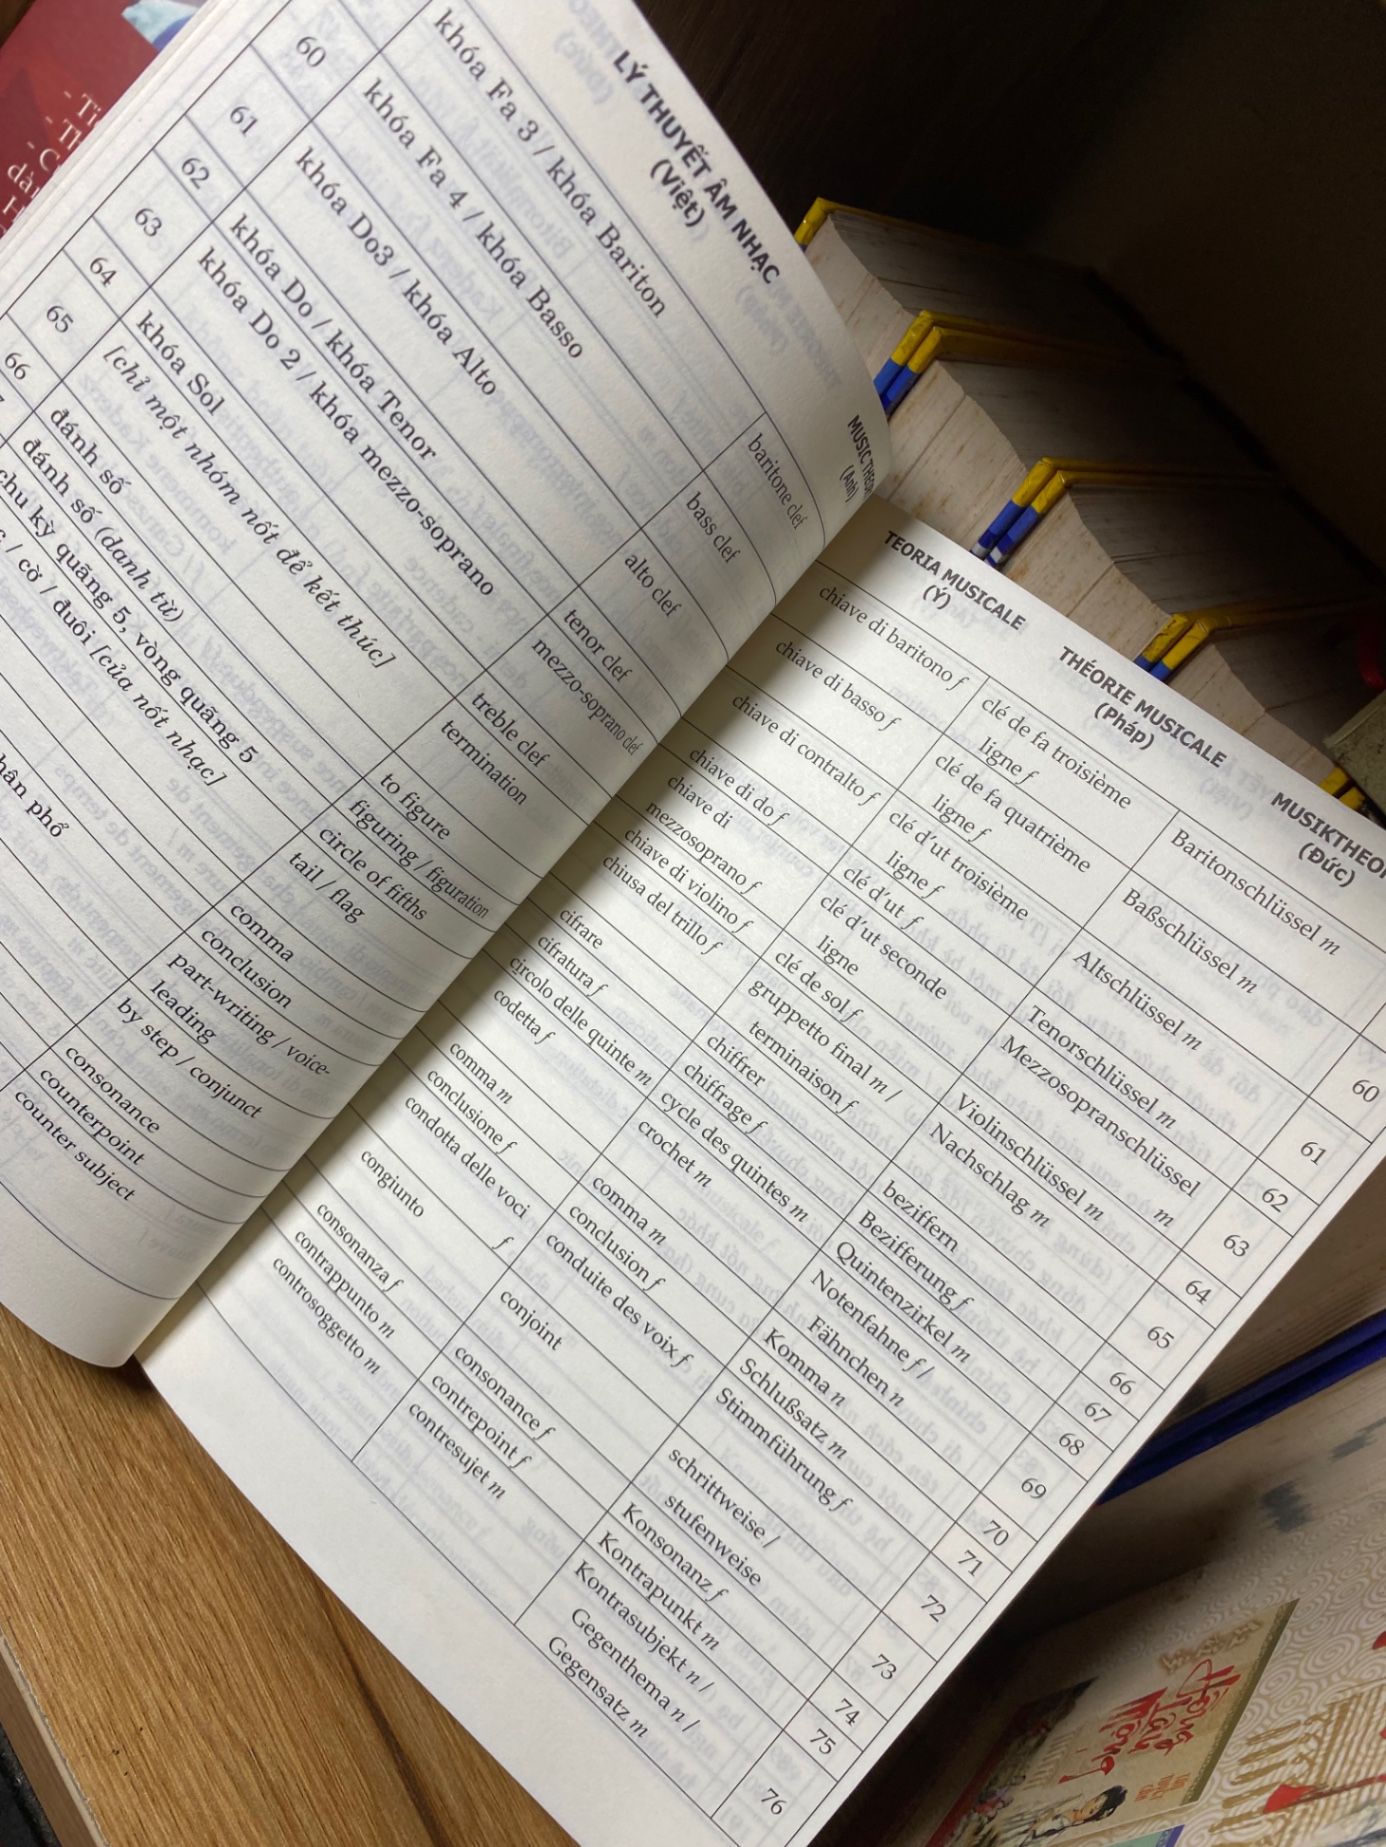 LÝ THUYẾT ÂM NHẠC
(Việt)
MUSIC
(Anh)
khóa Fa 3 / khóa Bariton
baritone clef
60
khóa Fa 4 / khóa Basso
bass clef
61
khóa Do3 / khóa Alto
alto clef
62
khóa Do / khóa Tenor
tenor clef
63
khóa Do 2 / khóa mezzo-soprano
mezzo-soprano clef
64
khóa Sol
treble clef
65
[chỉ một nhóm nốt để kết thúc]
termination
66
đánh số
to figure
đánh số (danh từ)
figuring / figuration
chu kỳ quãng 5, vòng quãng 5
circle of fifths
/ cờ / đuôi [của nốt nhạc]
tail / flag
comma
conclusion
phổ
part-writing / voice-
leading
by step / conjunct
consonance
counterpoint
counter subject
TEORIA MUSICALE
(Ý)
THÉORIE MUSICALE
(Pháp)
(Đức)
chiave di baritono f
clé de fa troisième
ligne f
Baritonschlüssel m
60
chiave di basso f
clé de fa quatrième
ligne f
Baßschlüssel m
61
chiave di contralto f
clé d'ut troisième
ligne f
Altschlüssel m
62
chiave di do f
clé d'ut f
Tenorschlüssel m
63
chiave di
mezzosoprano f
clé d'ut seconde
ligne
Mezzosopranschlüssel
m
64
chiave di violino f
clé de sol f
Violinschlüssel m
65
chiusa del trillo f
gruppetto final m /
terminaison f
Nachschlag m
66
cifrare
chiffrer
beziffern
67
cifratura f
chiffrage f
Bezifferung f
68
circolo delle quinte m
cycle des quintes m
Quintenzirkel m
69
codetta f
crochet m
Notenfahne f /
Fähnchen n
70
comma m
comma m
Komma n
71
conclusione f
conclusion f
Schlußsatz m
72
condotta delle voci
f
conduite des voix f
Stimmführung f
73
congiunto
conjoint
schrittweise /
stufenweise
74
consonanza f
consonance f
Konsonanz f
75
contrappunto m
contrepoint f
Kontrapunkt m
76
controsoggetto m
contresujet m
Kontrasubjekt n /
Gegenthema n /
Gegensatz m